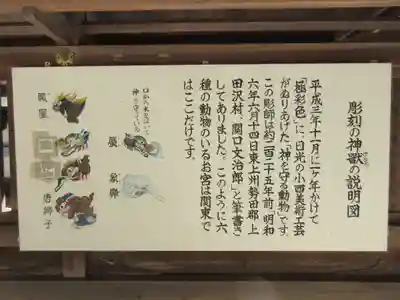 彫刻の神獣の説明図
平成三年十一月に一ヶ年かけて
「極彩色」に、日光の小西美術工芸
がぬりあげた「神を守る動物」です。
この彫師は約二百二十五年前「明和
六年六月十四日東上州勢田郡上
田沢村、関口文治郎」と筆書き
してありました。このように六
種の動物のいるお宮は関東で
はここだけです。
口から水をはいて
神を守っている
鳳凰
唐獅子